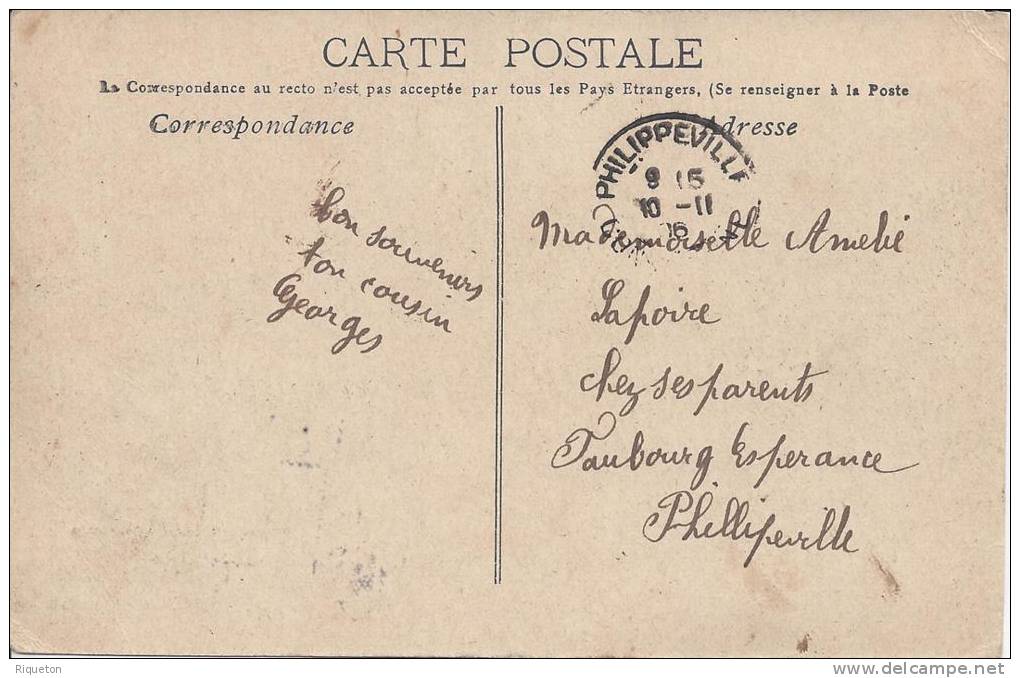 CARTE POSTALE
La Correspondance au recto n'est pas acceptée par tous les Pays Etrangers, (Se renseigner à la Poste
Correspondance
Adresse
PHILIPPEVILLE
10 -11
bon souvenirs
ton cousin
Georges
Mademoiselle Amelie
Lapoire
chez ses parents
Faubourg Esperance
Phillipeville
Riqueton
www.delcampe.net